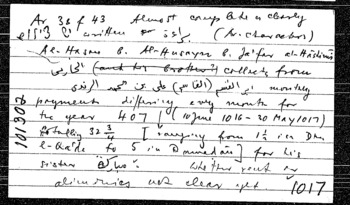 Ar. 38 f 43 Almost complete & clearly
written براءة (Ar. characters)
Al-Hasan b. Al-Husayn b. Ja'far al-Hāshimī
(and his brother?) collects from
علي بن محمد monthly
payments differing every month for
the year 407 (10 June 1016 - 30 May 1017)
totalling 32 3/4 [ranging from 1½ in Dhu
l-Qa'da to 5 in Ramadān] for his
sister مباركة. Whether rent or
alimonies not clear yet. 1017
101302